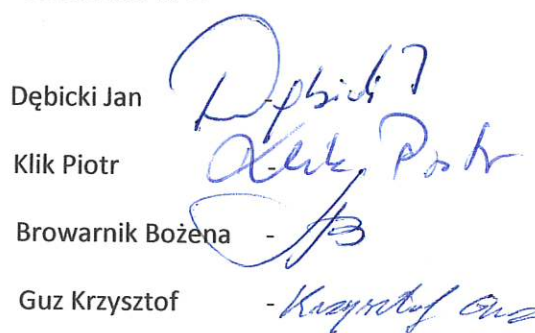 Dębicki Jan - Dębicki J
Klik Piotr - Klik Piotr
Browarnik Bożena -
Guz Krzysztof - Krzysztof Guz